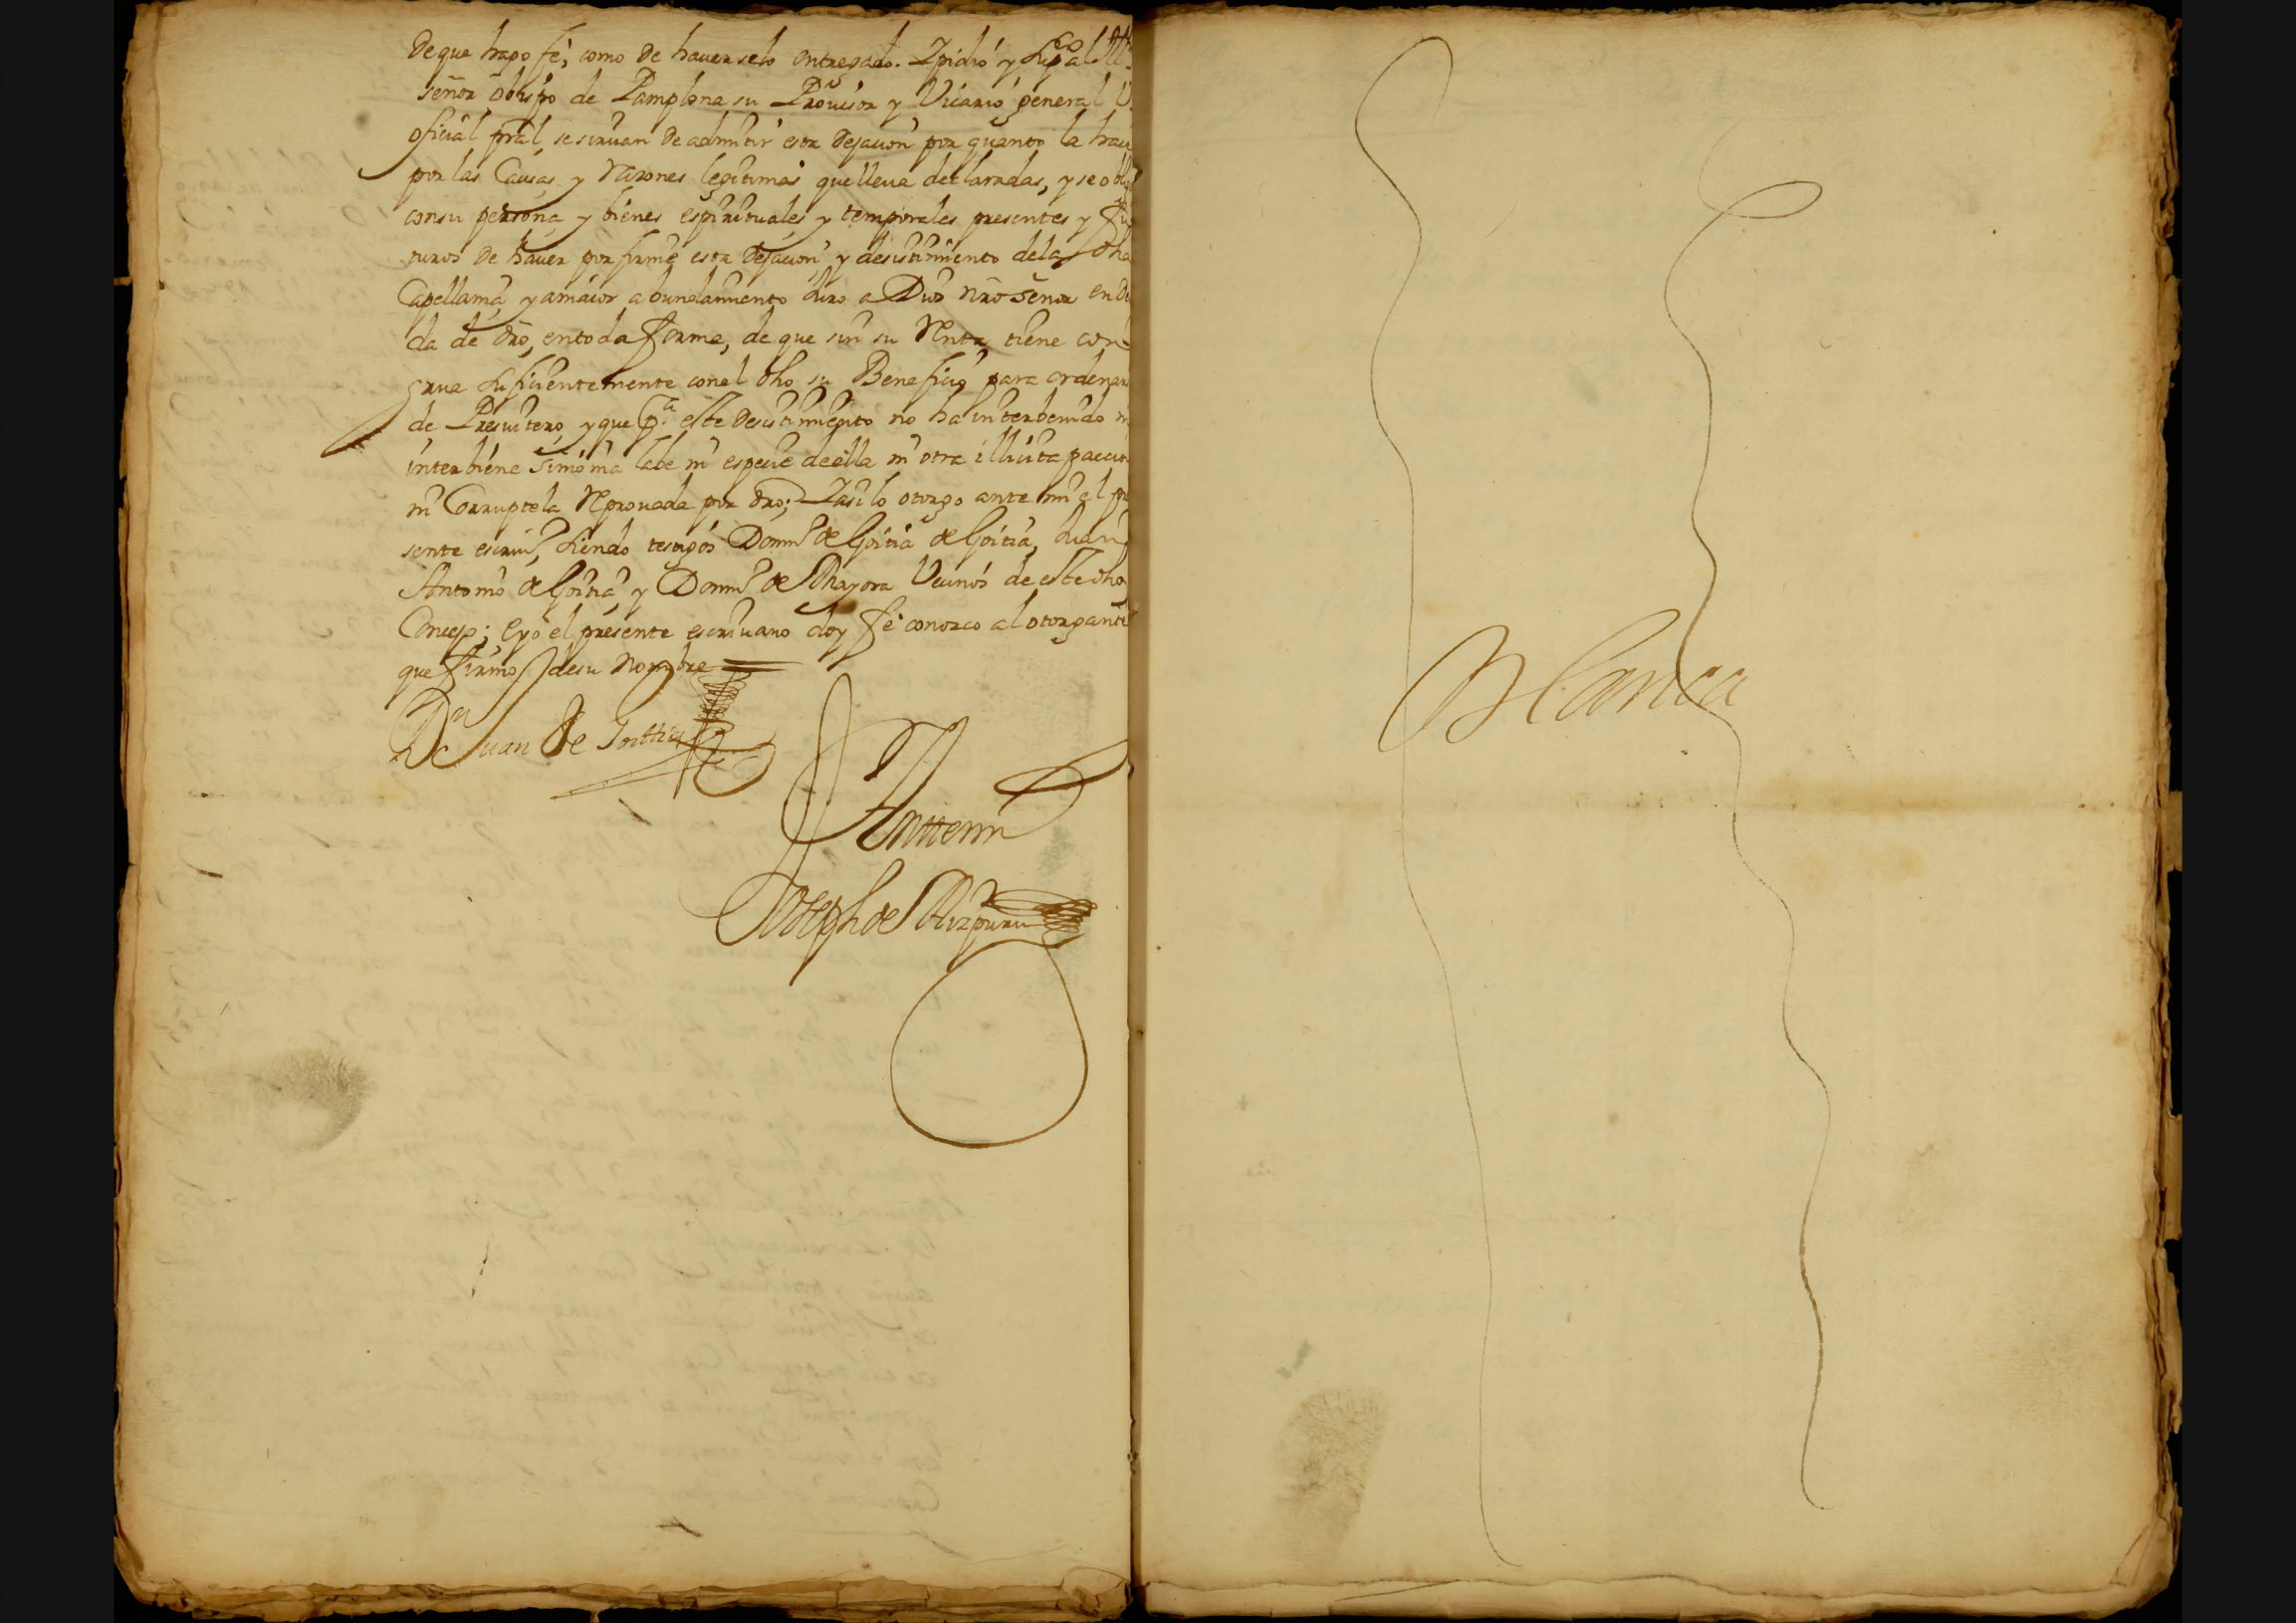 de que hago fé, como de haverselo entregado. Y pidió y supco al Ill.
señor obispo de Pamplona su Provisor y Vicario general V
oficial pral se sirvan de admitir esta dejacion por quanto la hace
por las Causas y Razones legitimas que lleva declaradas, y se obli
con su persona y bienes espirituales y temporales presentes y fu
turos de haver por firme esta dejacion y desistimiento dela dha
Capellania y amaior abundamiento Juro a Dios nro señor en de
da de dro, en toda forma, de que sin su Renta tiene con
grua suficientemente con el dho su Beneficio para ordenar
de Presvitero, y que pa este desistimiento no ha interbenido ni
interbiene simonia labe ni especie de ella ni otra illicita paccion
ni Corruptela Reprovada por dro; Y asi lo otorgo ante mi el pre
sente escriv.o siendo testigos Domin.o de Goitia de Goitia, Juan
Antonio de Goitia y Domin.o de Mayora Vecinos de este dho
Concejo; e yo el presente escrivano doy fé conozco al otorgante
que firmo de su nombre
Dn Juan de Goittia
Ante mi
Joseph de Aizpuru
Blanca